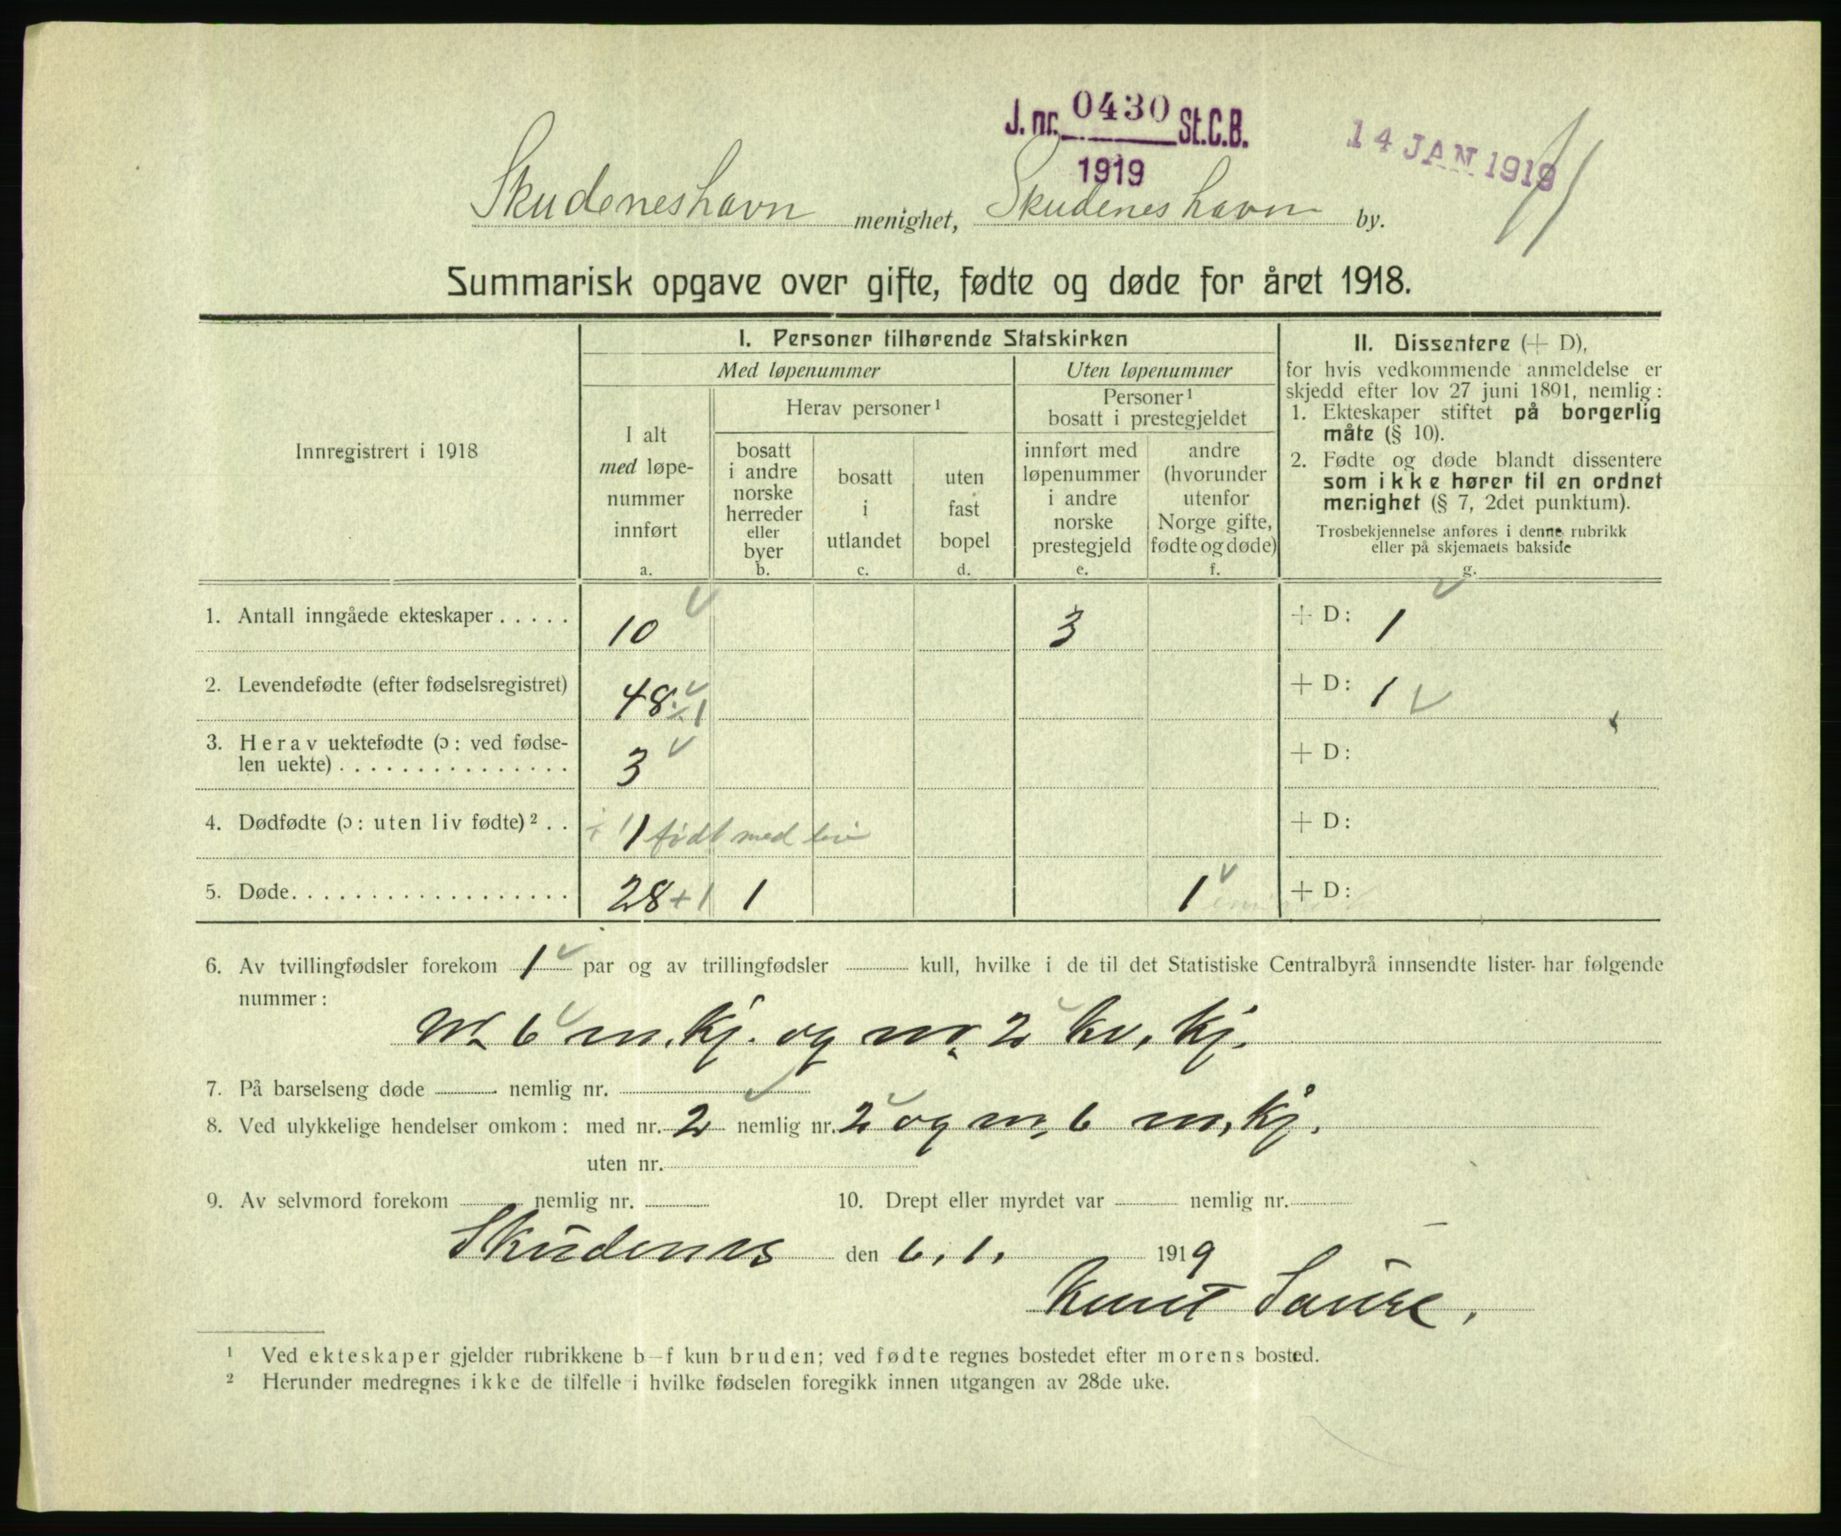 J. nr. 0430 St.C.B.
1919
14 JAN 1919
Skudeneshavn menighet, Skudeneshavn by.
Summarisk opgave over gifte, fødte og døde for året 1918.
Innregistrert i 1918
I. Personer tilhørende Statskirken
Med løpenummer
Uten løpenummer
I alt
med løpe-
nummer
innført
a.
Herav personer¹
bosatt
i andre
norske
herreder
eller
byer
b.
bosatt
i
utlandet
c.
uten
fast
bopel
d.
Personer¹
bosatt i prestegjeldet
innført med
løpenummer
i andre
norske
prestegjeld
e.
andre
(hvorunder
utenfor
Norge gifte,
fødte og døde)
f.
II. Dissentere (+ D),
for hvis vedkommende anmeldelse er
skjedd efter lov 27 juni 1891, nemlig:
1. Ekteskaper stiftet på borgerlig
måte (§ 10).
2. Fødte og døde blandt dissentere
som ikke hører til en ordnet
menighet (§ 7, 2det punktum).
Trosbekjennelse anføres i denne rubrikk
eller på skjemaets bakside
g.
1. Antall inngåede ekteskaper ..... 10 3 + D: 1
2. Levendefødte (efter fødselsregistret) 48 + 1 + D: 1
3. Herav uektefødte (ɔ: ved fødse-
len uekte) ............... 3 + D:
4. Dødfødte (ɔ: uten liv fødte)² .. 1 født med liv + D:
5. Døde.................. 28 + 1 1 1 + D:
6. Av tvillingfødsler forekom 1 par og av trillingfødsler kull, hvilke i de til det Statistiske Centralbyrå innsendte lister har følgende
nummer:
nr. 6 m. kj. og nr. 2 kv. kj.
7. På barselseng døde nemlig nr.
8. Ved ulykkelige hendelser omkom: med nr. 2 nemlig nr. 2 og nr. 6 m. kj.
uten nr.
9. Av selvmord forekom nemlig nr. 10. Drept eller myrdet var nemlig nr.
Skudenes den 6. 1. 1919
Knut
¹ Ved ekteskaper gjelder rubrikkene b–f kun bruden; ved fødte regnes bostedet efter morens bosted.
² Herunder medregnes ikke de tilfelle i hvilke fødselen foregikk innen utgangen av 28de uke.